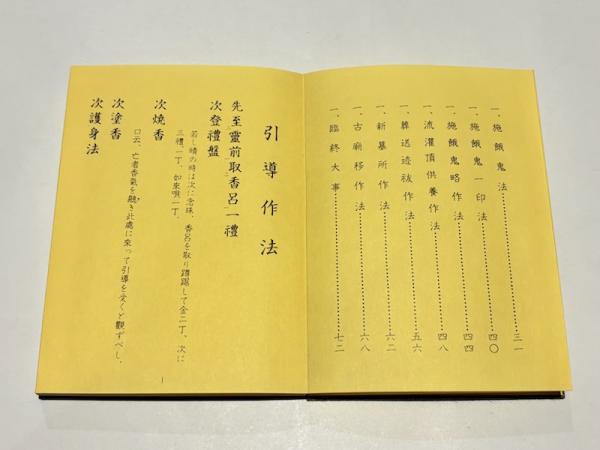 一、施餓鬼法……………三一
一、施餓鬼一印法……………四〇
一、施餓鬼略作法……………四四
一、流灌頂供養作法……………四八
一、葬送迹祓作法……………五六
一、新墓所作法……………六二
一、古廟移作法……………六八
一、臨終大事……………七二
引導作法
先至靈前取香呂一禮
次登禮盤
若し晴の時は次に念珠、香呂を取り蹲踞して金二丁、次に
三禮一丁、如來唄一丁、
次燒香
次塗香
口云、亡者香氣を聽き此處に來って引導を受くと觀ずべし、
次護身法
1